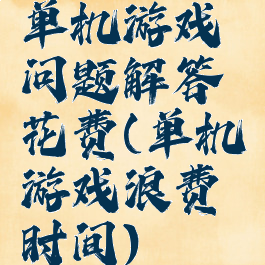 单机游戏
问题解答
花费(单机
游戏浪费
时间)